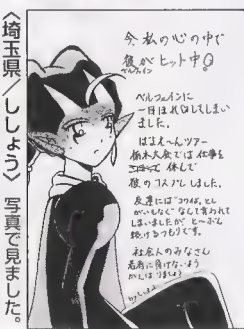 今、私の心の中で
彼がヒット中♀
ベルフェイン
ベルフェインに
一目ぼれしてしまい
ました。
はまえ〜んツアー
栃木大会では仕事を
休んで
彼のコスプレしました。
友達には
がいしなく"なんて言われて
しまいましたが、と〜ぶん
続けるつもりです。
社会人のみなさん
若者に負けないよう
がんばりましょう
〈埼玉県/ししょう〉 写真で見ました。